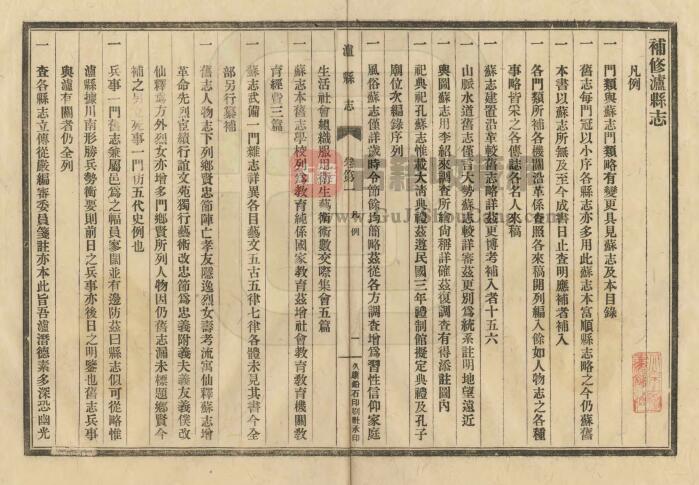 補修瀘縣志
凡例
一 門類與蘇志門類略有變更具見蘇志及本目錄
一 舊志每門冠以小序各縣志亦多用此蘇志本富順縣志略之今仍蘇舊
一 本書以蘇志所無及至今成書日止查明應補者補入
一 各門類所補各機關沿革係查照各來稿開列編入餘如人物志之各種
事略皆采之各傳誌各名人來稿
一 蘇志建置沿革較舊志略詳茲更博考補入者十五六
一 山脈水道舊志僅言大勢蘇志較詳審茲更別爲統系註明地望遠近
一 輿圖蘇志用李紹來調查所繪尙稱詳確茲復調查有得添註圖內
一 祀典祀孔蘇志惟載大淸典禮茲遵民國三年禮制館擬定典禮及孔子
廟位次編錄序列
一 風俗蘇志僅詳歲時令節餘均簡略茲從各方調查增爲習性信仰家庭
瀘縣志
凡例
一
久康鉛石印刷社承印
生活社會組織服忌衛生藝術術數交際集會五篇
一 蘇志本舊志學校列爲教育純係國家教育茲增社會教育教育機關教
育經費三篇
一 蘇志武備一門雜志詳異各目藝文五古五律七律各體未見其書今全
部另行纂補
一 舊志人物志下列鄉賢忠節陣亡孝友隱逸烈女壽考流寓仙釋蘇志增
革命先烈宦績行誼文苑獨行藝術改忠節爲忠義附義夫義友義僕改
仙釋爲方外烈女亦增多門鄉賢所列人物因仍舊志漏未標題鄉賢今
補之 死事一門仿五代史例也
一 兵事一門舊志兼屬邑爲之幅員寥闊並有邊防茲曰縣志似可從略惟
瀘縣據川南形勝兵勢衝要則前日之兵事亦後日之明鑒也舊志兵事
與瀘有關者仍全列
一 查各縣志立傳從嚴編審委員箋註亦本此旨吾瀘潛德素多深恐幽光